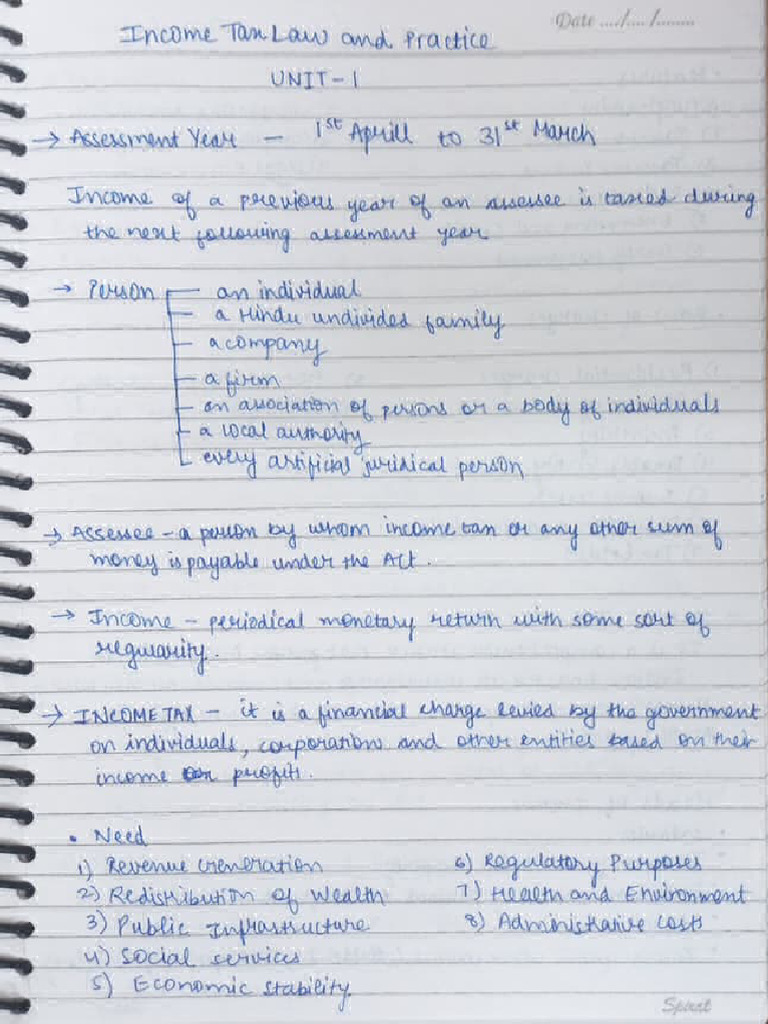 Date ..../..../........
Income Tax Law and Practice
UNIT-1
→ Assessment Year - 1st Aprill to 31st March
Income of a previous year of an assessee is taxed during
the next following assessment year
→ Person - an individual
- a Hindu undivided family
- a company
- a firm
- an association of persons or a body of individuals
- a local authority
- every artificial juridical person
→ Assessee - a person by whom income tax or any other sum of
money is payable under the Act.
→ Income - periodical monetary return with some sort of
regularity.
→ INCOME TAX - it is a financial charge levied by the government
on individuals, corporations and other entities based on their
income or profits.
• Need
1) Revenue Generation
2) Redistribution of Wealth
3) Public Infrastructure
4) Social services
5) Economic stability.
6) Regulatory Purposes
7) Health and Environment
8) Administrative costs
Spirat